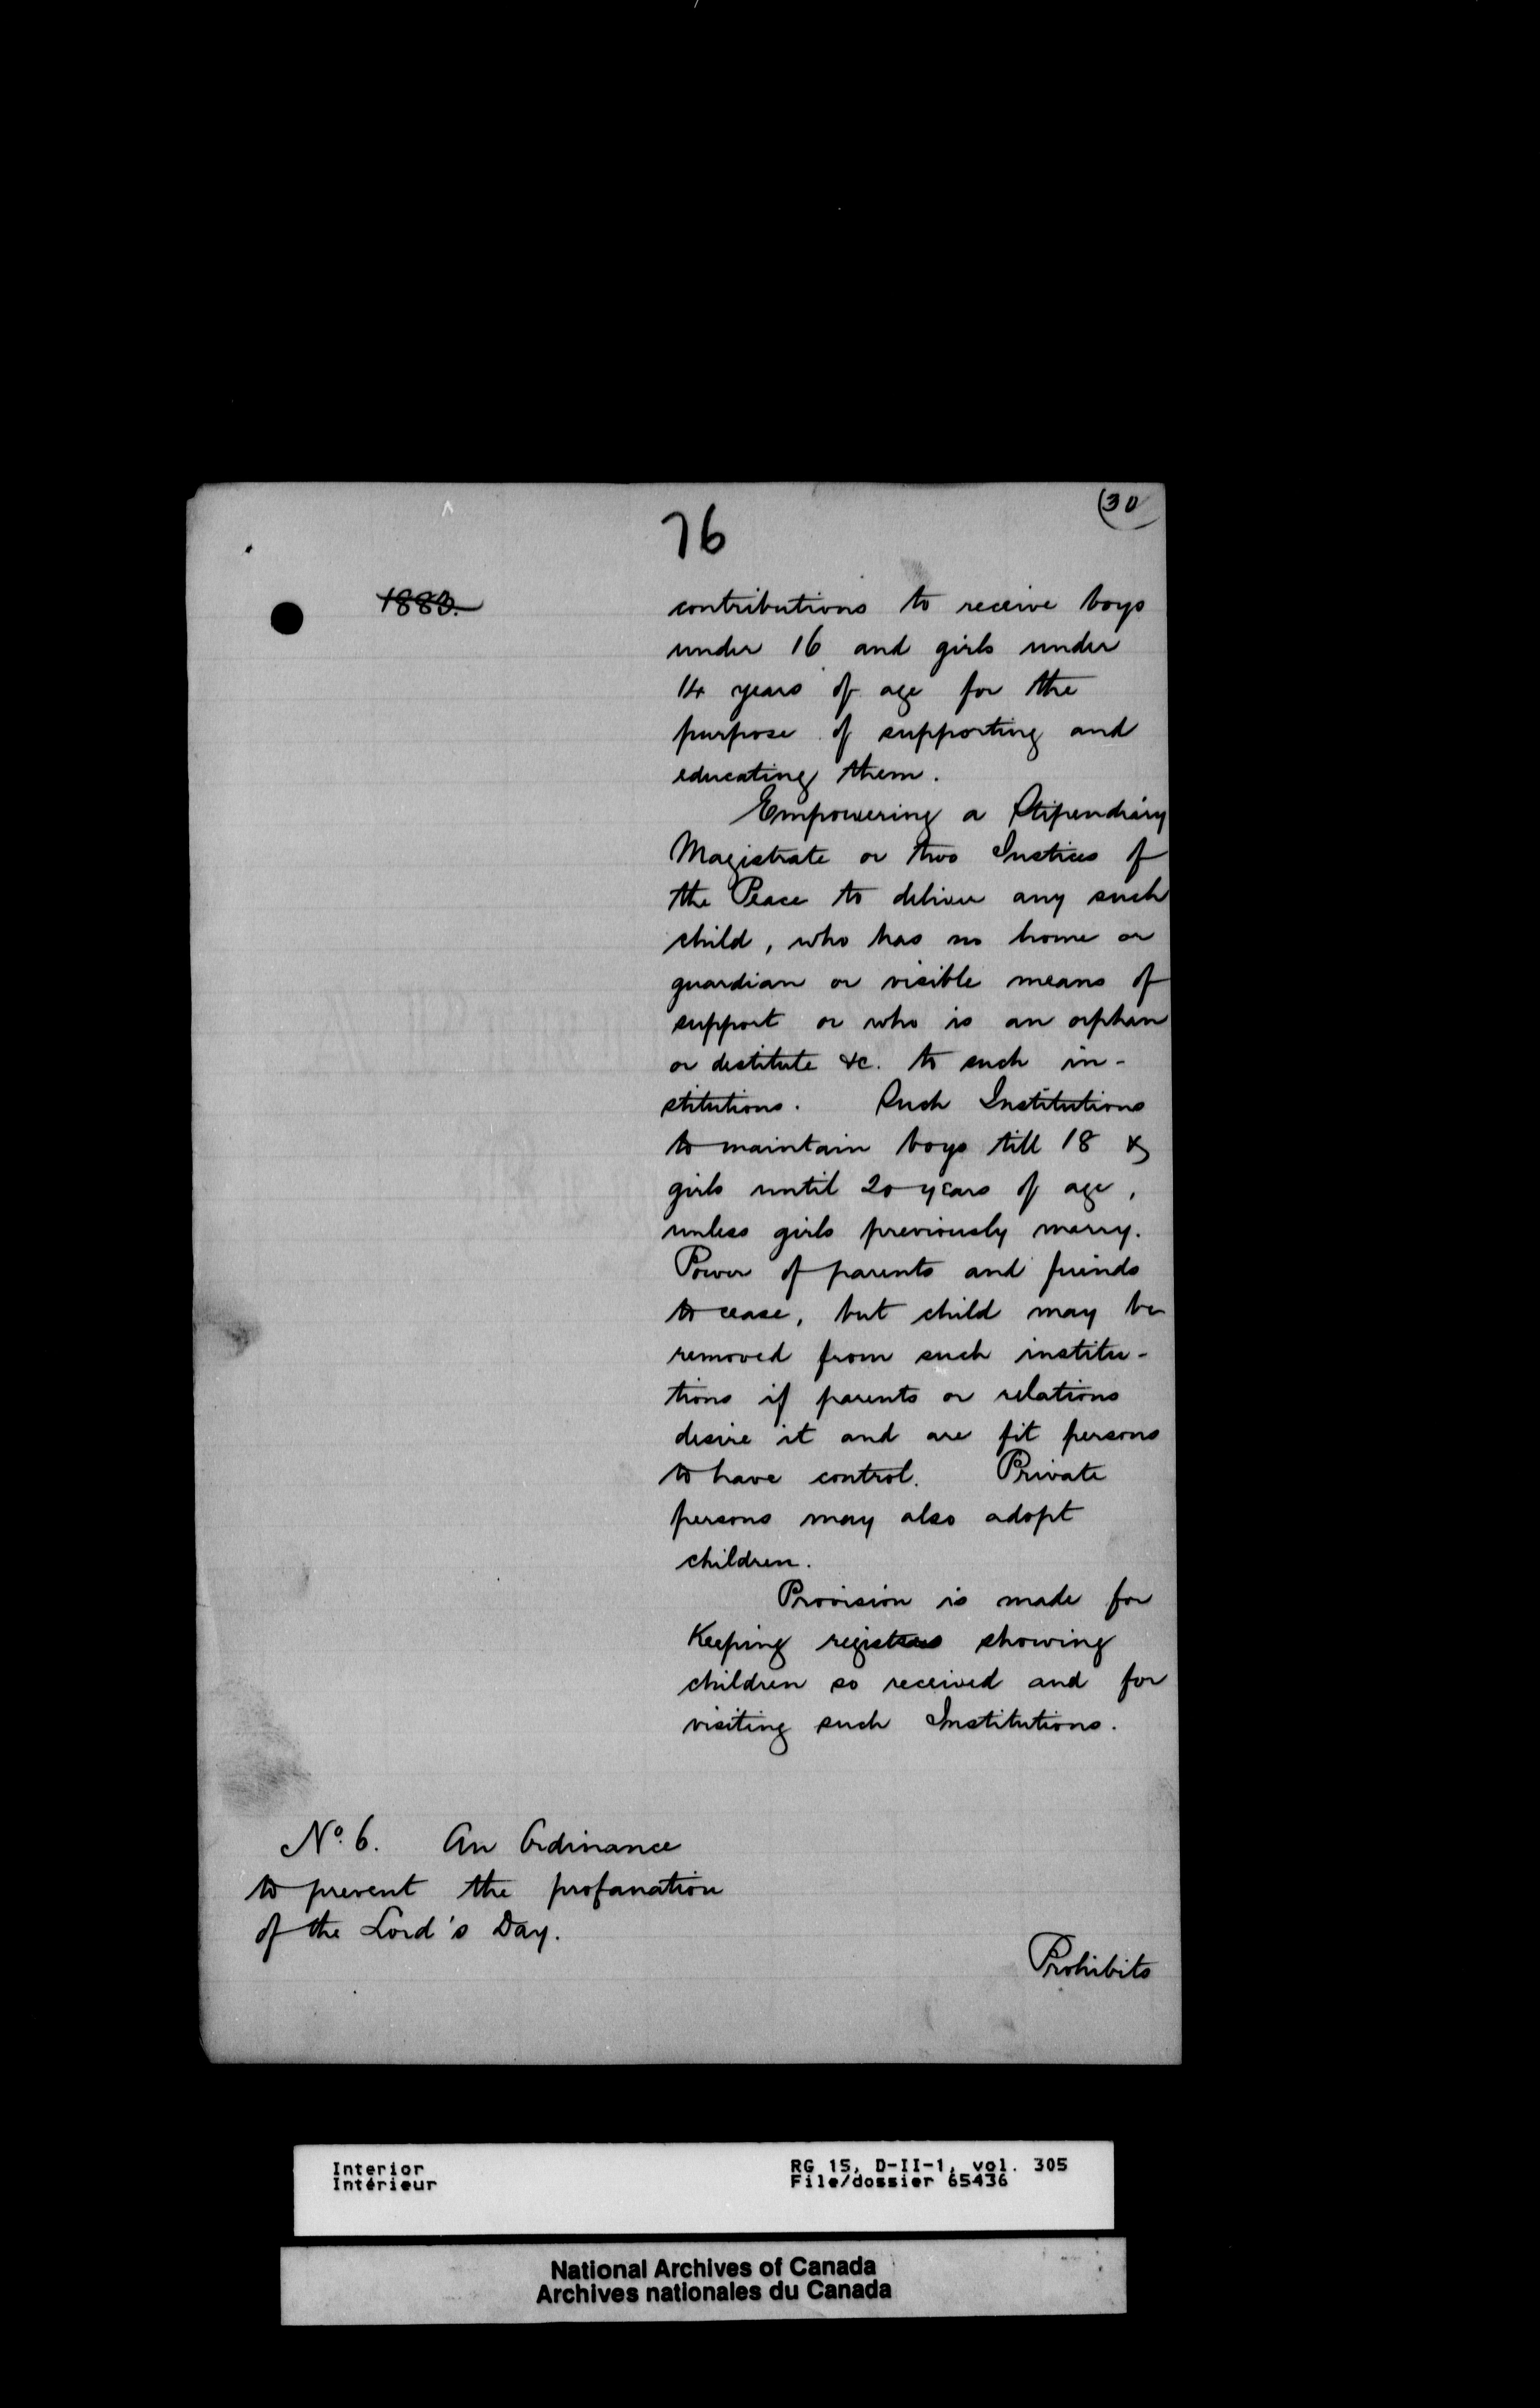 (30
76
1880.
contributions to receive boys
under 16 and girls under
14 years of age for the
purpose of supporting and
educating them.
Empowering a Stipendiary
Magistrate or two Justices of
the Peace to deliver any such
child, who has no home or
guardian or visible means of
support or who is an orphan
or destitute &c. to such in-
stitutions. Such Institutions
to maintain boys till 18 &
girls until 20 years of age,
unless girls previously marry.
Power of parents and friends
to cease, but child may be
removed from such institu-
tions if parents or relations
desire it and are fit persons
to have control. Private
persons may also adopt
children.
Provision is made for
Keeping registers showing
children so received and for
visiting such Institutions.
No. 6. An Ordinance
to prevent the profanation
of the Lord's Day.
Prohibits
Interior
Intérieur
RG 15, D-II-1, vol. 305
File/dossier 65436
National Archives of Canada
Archives nationales du Canada